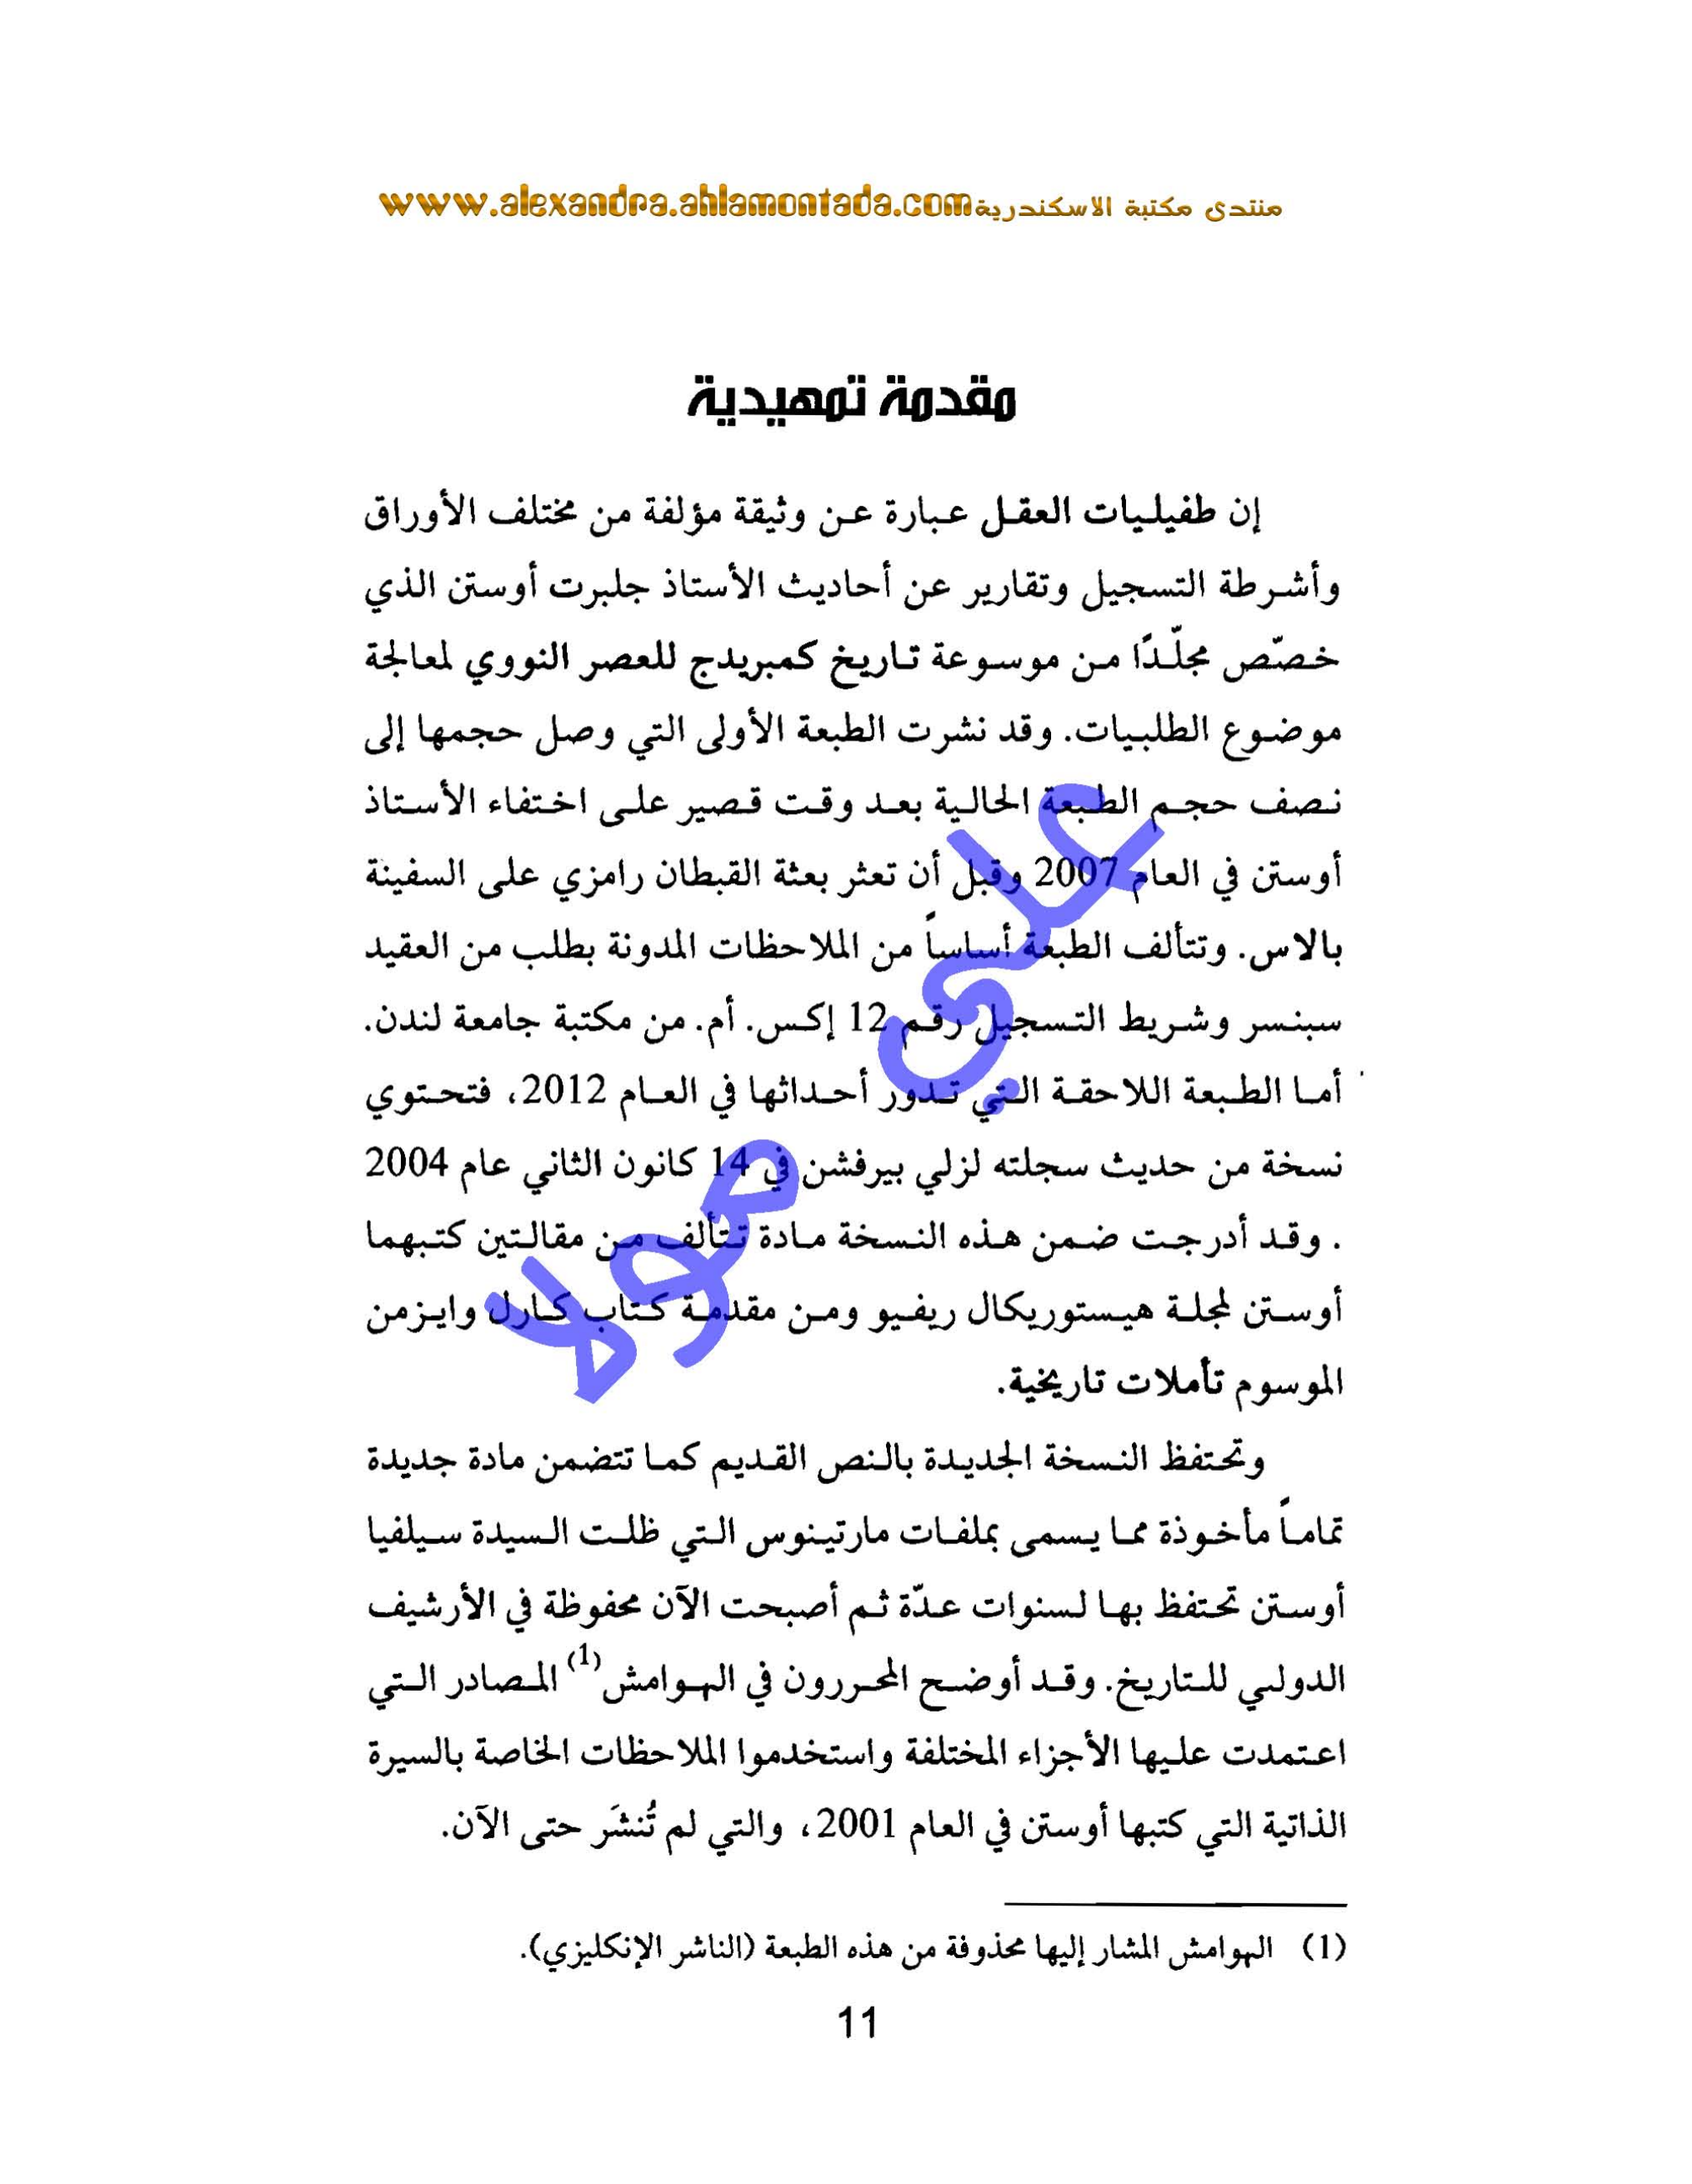 منتدى مكتبة الاسكندرية www.alexandra.ahlamontada.com
مقدمة تمهيدية
إن طفيليات العقل عبارة عن وثيقة مؤلفة من مختلف الأوراق
وأشرطة التسجيل وتقارير عن أحاديث الأستاذ جلبرت أوستن الذي
خصّص مجلّدًا من موسوعة تاريخ كمبريدج للعصر النووي لمعالجة
موضوع الطلبيات. وقد نشرت الطبعة الأولى التي وصل حجمها إلى
نصف حجم الطبعة الحالية بعد وقت قصير على اختفاء الأستاذ
أوستن في العام 2007 وقبل أن تعثر بعثة القبطان رامزي على السفينة
بالاس. وتتألف الطبعة أساساً من الملاحظات المدونة بطلب من العقيد
سبنسر وشريط التسجيل رقم 12 إكس. أم. من مكتبة جامعة لندن.
أما الطبعة اللاحقة التي تدور أحداثها في العام 2012، فتحتوي
نسخة من حديث سجلته لزلي بيرفشن في 14 كانون الثاني عام 2004
. وقد أدرجت ضمن هذه النسخة مادة تتألف من مقالتين كتبهما
أوستن لمجلة هيستوريكال ريفيو ومن مقدمة كتاب كارل وايزمن
الموسوم تأملات تاريخية.
وتحتفظ النسخة الجديدة بالنص القديم كما تتضمن مادة جديدة
تماماً مأخوذة مما يسمى بملفات مارتينوس التي ظلت السيدة سيلفيا
أوستن تحتفظ بها لسنوات عدّة ثم أصبحت الآن محفوظة في الأرشيف
الدولي للتاريخ. وقد أوضح المحررون في الهوامش(1) المصادر التي
اعتمدت عليها الأجزاء المختلفة واستخدموا الملاحظات الخاصة بالسيرة
الذاتية التي كتبها أوستن في العام 2001، والتي لم تُنشَر حتى الآن.
(1) الهوامش المشار إليها محذوفة من هذه الطبعة (الناشر الإنكليزي).
11
علي مولا